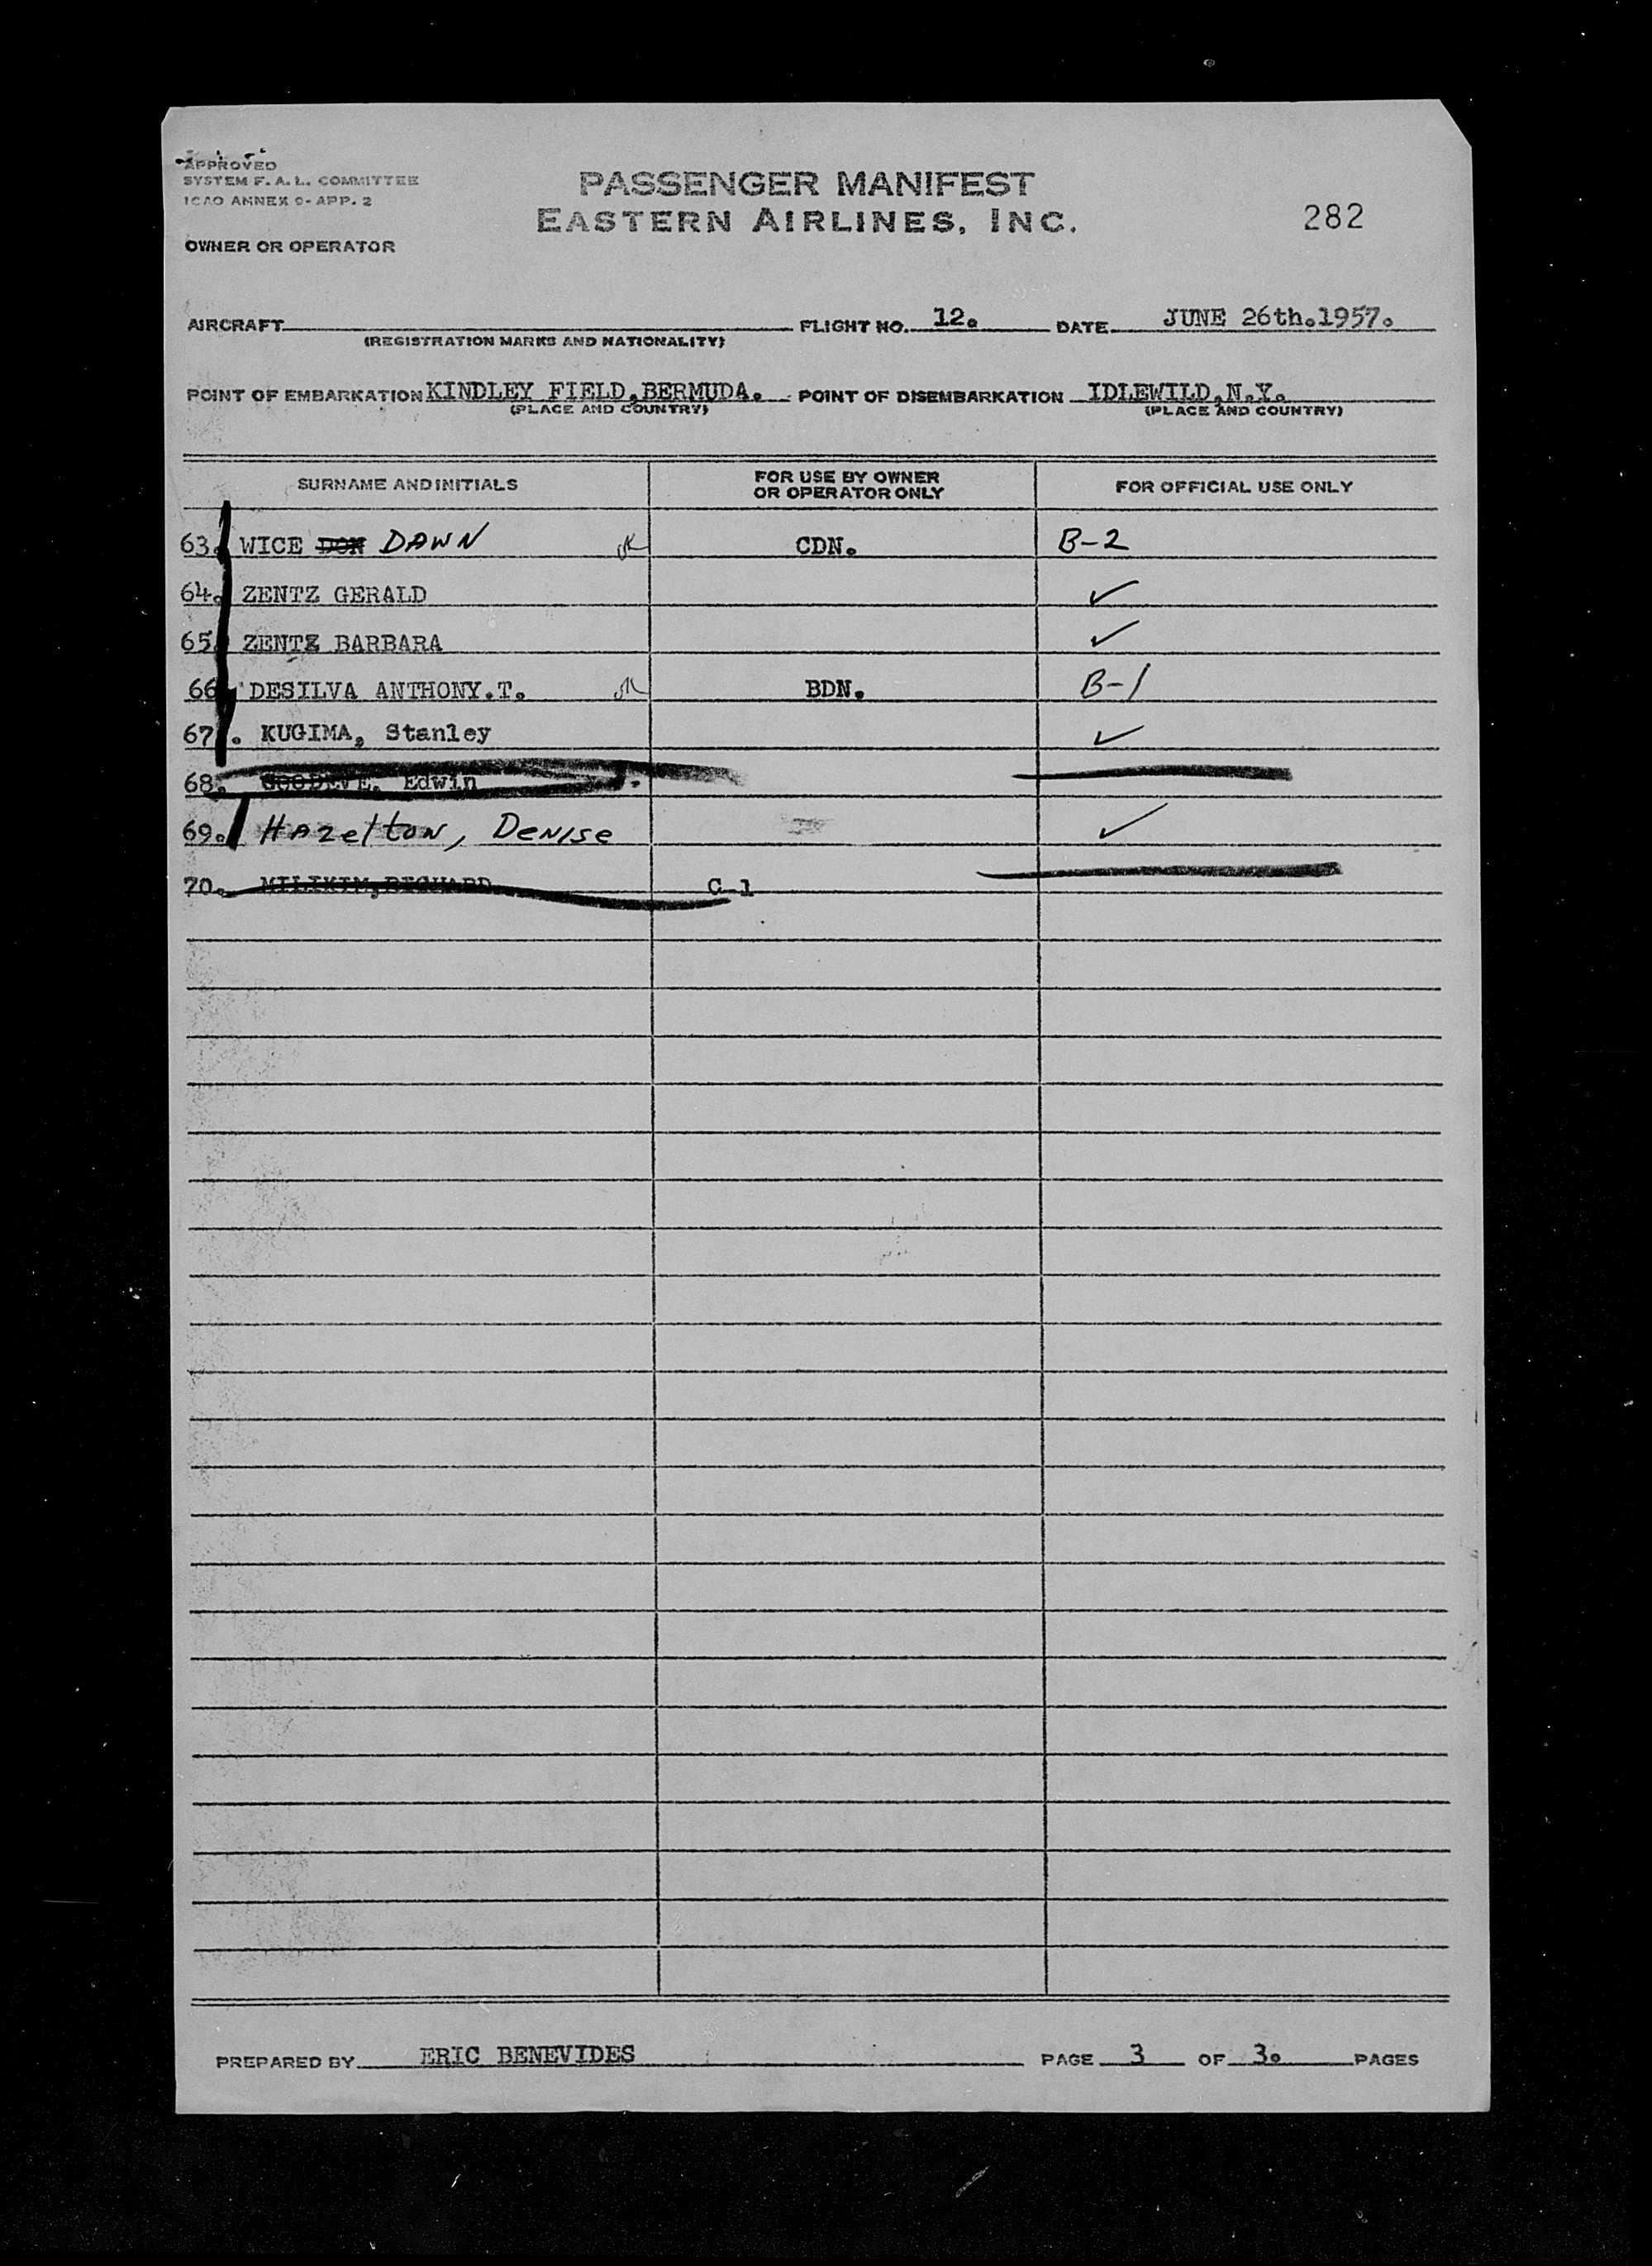 APPROVED
SYSTEM F. A. L. COMMITTEE
ICAO ANNEX 9- APP. 2
PASSENGER MANIFEST
EASTERN AIRLINES, INC.
282
OWNER OR OPERATOR
AIRCRAFT FLIGHT NO. 12. DATE JUNE 26th.1957.
(REGISTRATION MARKS AND NATIONALITY)
POINT OF EMBARKATION KINDLEY FIELD,BERMUDA. POINT OF DISEMBARKATION IDLEWILD,N.Y.
(PLACE AND COUNTRY) (PLACE AND COUNTRY)
SURNAME AND INITIALS FOR USE BY OWNER OR OPERATOR ONLY FOR OFFICIAL USE ONLY
63. WICE DON DAWN CDN. B-2
64. ZENTZ GERALD ✓
65. ZENTZ BARBARA ✓
66. DESILVA ANTHONY.T. BDN. B-1
67. KUGIMA, Stanley ✓
68. Edwin
69. Hazelton, Denise ✓
70. C-1
PREPARED BY ERIC BENEVIDES PAGE 3 OF 3. PAGES